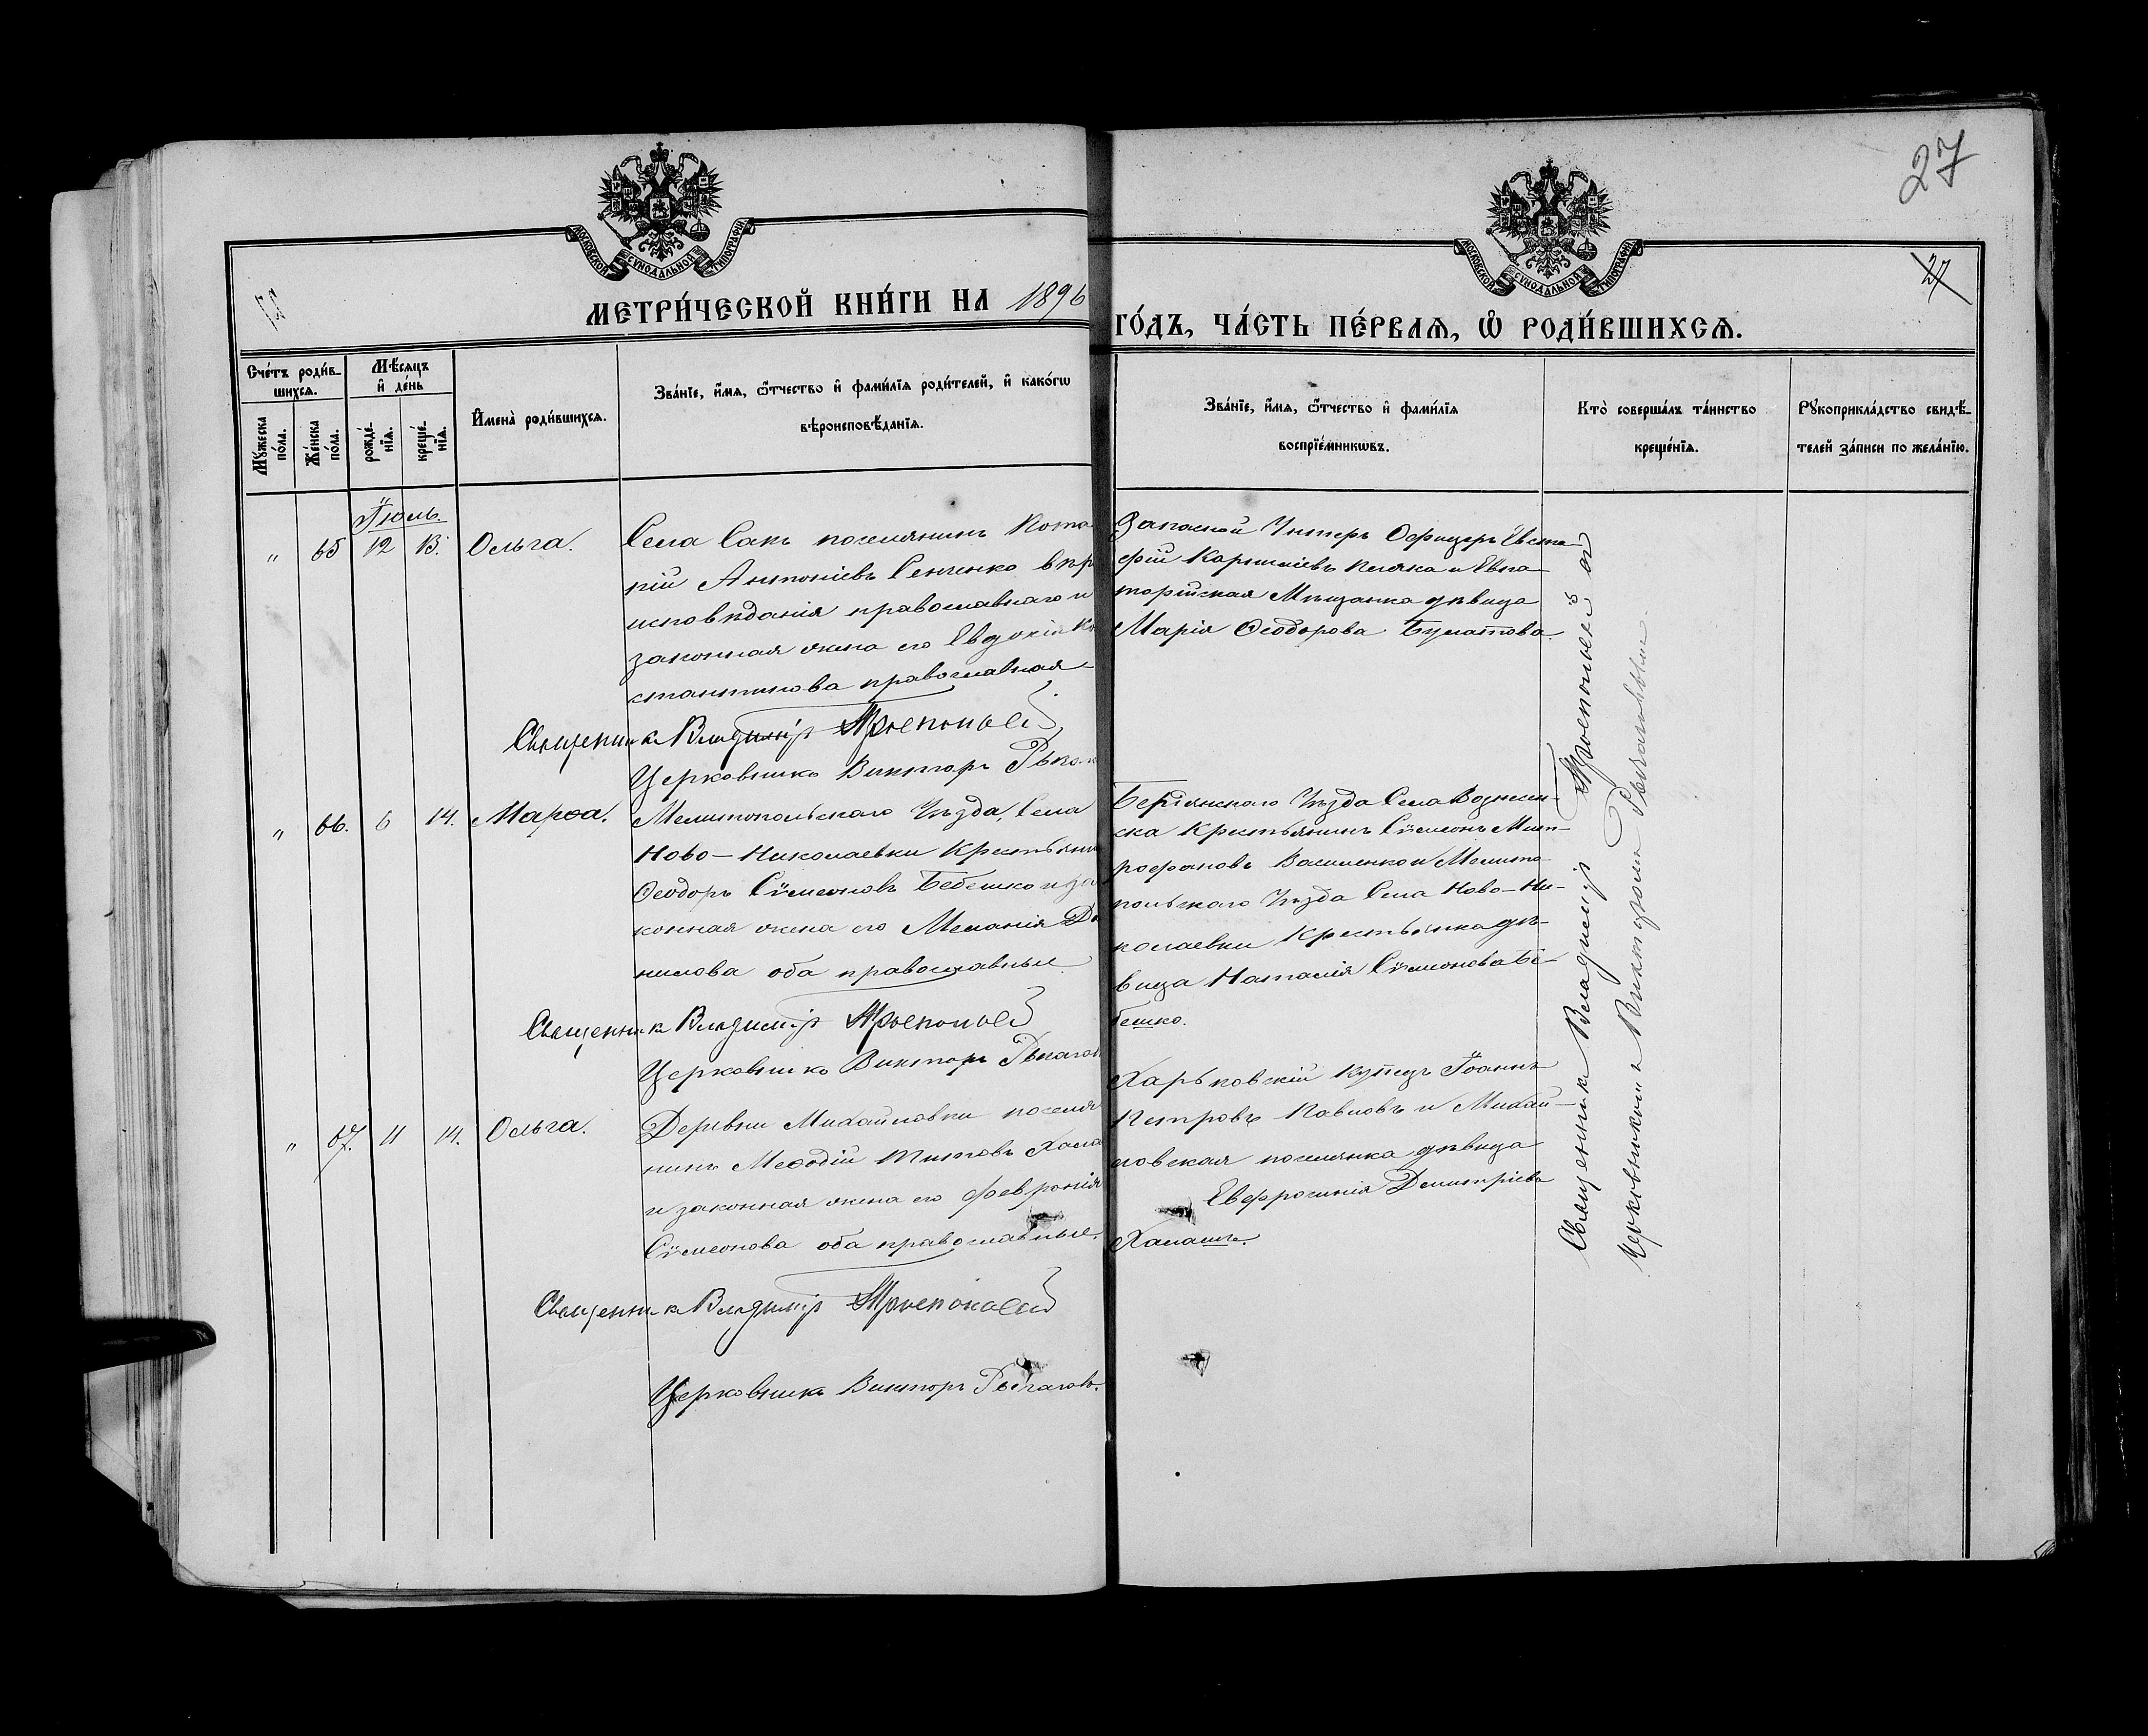 27
МОСКОВСКОЙ СѴНОДАЛЬНОЙ ТИПОГРАФІИ
МОСКОВСКОЙ СѴНОДАЛЬНОЙ ТИПОГРАФІИ
27
МЕТРИ́ЧЕСКОЙ КНИ́ГИ НА 1896
ГО́ДЪ, ЧА́СТЬ ПЕ́РВАѦ, Ѡ РОДИ́ВШИХСѦ.
Сче́тъ роди́в-
шихсѧ.
Мꙋжеска по́ла.
Же́нска по́ла.
Мѣ́сѧцъ
и҆ де́нь
рожде́-
нїѧ.
креще́-
нїѧ.
И҆мена̀ роди́вшихсѧ.
Зва́нїе, и҆́мѧ, ѻ҆́тчество и҆ фами́лїѧ роди́телей, и҆ како́гѡ
вѣроисповѣ́данїѧ.
Зва́нїе, и҆́мѧ, ѻ҆́тчество и҆ фами́лїѧ
воспрїе́мникѡвъ.
Кто̀ соверша́лъ та́инство
креще́нїѧ.
Рꙋкоприкла́дство свидѣ́-
телей за́писи по жела́нїю.
Іюль.
„ 65 12 13. Ольга.
Села Сакъ поселянинъ Пота
пій Антоніевъ Сенченко впр
исповѣданія православнаго и
законная жена его Евдокія Ко
стантинова православная
Священникъ Владиміръ
Церковникъ Викторъ
Запасной Унтеръ Офицеръ Евста-
фій Корниліевъ и Евпа-
торійская Мѣщанка дѣвица
Марія Ѳеодорова Булатова
„ 66. 6 14. Марѳа.
Мелитопольскаго Уѣзда, Села
Ново-Николаевки Крестьянин
Ѳеодоръ Сѵмеоновъ Бебешко и за
конная жена его Меланія Да
нилова оба православные
Священникъ Владиміръ
Церковникъ Викторъ
Бердянскаго Уѣзда Села Вознесен-
ска Крестьянинъ Сѵмеонъ Мит-
рофановъ Василенко и Мелито-
польскаго Уѣзда Села Ново-Ни-
колаевки Крестьянка дѣ-
вица Наталія Сѵмеонова Бе-
бешко.
„ 67. 11 14. Ольга.
Деревни Михайловки поселя
нинъ Меѳодій Титовъ Хала
и законная жена его Февронія
Сѵмеонова оба православные.
Священникъ Владиміръ
Церковникъ Викторъ
Харьковскій Купецъ Іоаннъ
Петровъ Павловъ и Михай-
ловская поселянка дѣвица
Евфросинія Димитріева
Священникъ Владиміръ
Церковникомъ Викторомъ